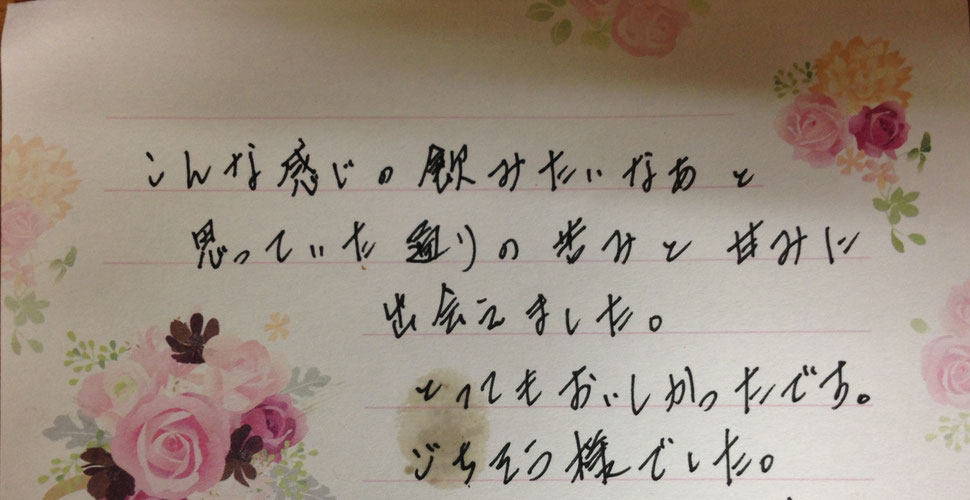 こんな感じの飲みたいなあと
思っていた通りの苦みと甘みに
出会えました。
とってもおいしかったです。
ごちそう様でした。